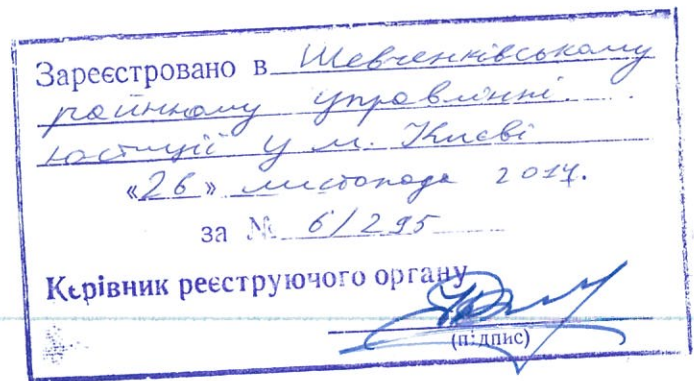 Зареєстровано в Шевченківському
районному управлінні
юстиції у м. Києві
«26» листопада 2014.
за № 6/295
Керівник реєструючого органу
(підпис)